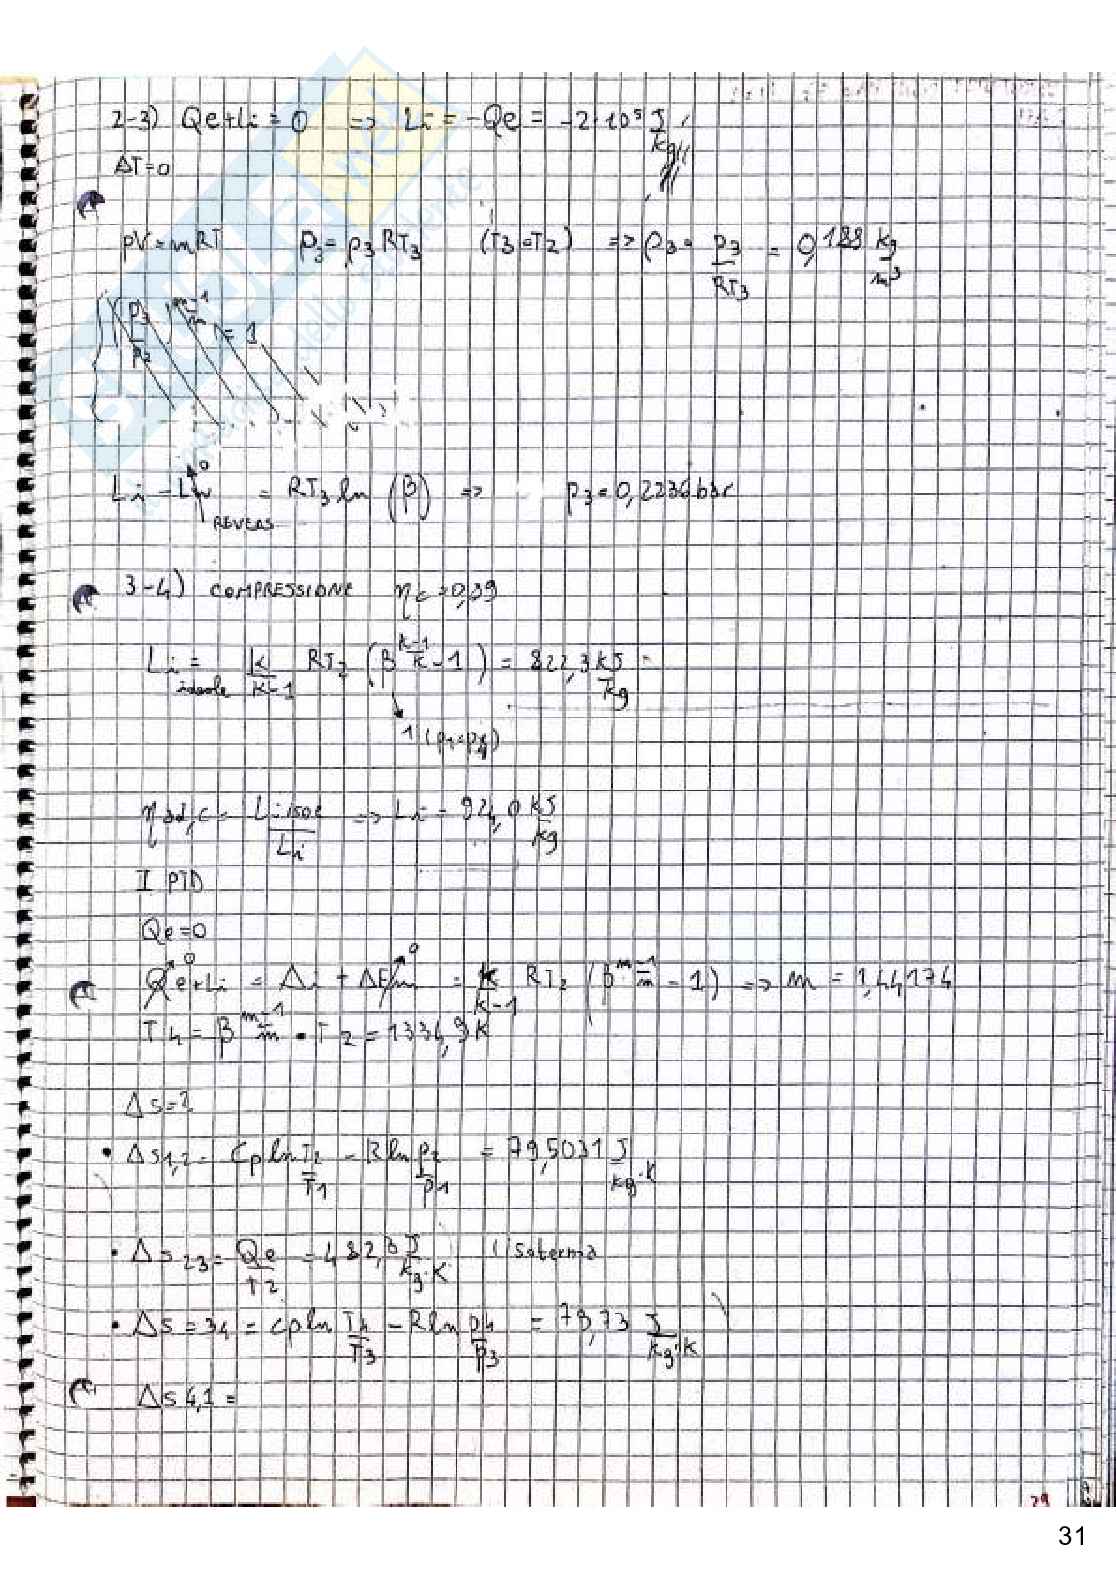 2-3) Qe+Li = 0 => Li = -Qe = -2·10⁵ J/kg
ΔT=0
pV=mRT p3= ρ3 RT3 (T3=T2) => ρ3= p3/RT3 = 0,188 kg/m³
(p3/p2)^(m-1/m) = 1
Li - Lw⁰ = RT3 ln (β) => p3=0,2236 bar
REVERS
3-4) COMPRESSIONE ηc=0,89
Li ideale = k/k-1 RT2 (β^(k-1/k) -1) = 822,3 kJ/kg
1 (p1=p4)
ηad,c= Li isoe/Li => Li = 924,0 kJ/kg
I PTD
Qe=0
Qe⁰+Li = Δi + ΔE⁰ = k/k-1 RT2 (β^(m-1/m) - 1) => m = 1,44174
T4 = β^(m-1/m) · T2 = 1334,9 K
Δs=?
• Δs1,2= Cp ln T2/T1 - R ln p2/p1 = 79,5031 J/kg·K
• Δs23= Qe/T2 = 482,8 J/kg·K isoterma
• Δs=34 = cp ln T4/T3 - R ln p4/p3 = 79,73 J/kg·K
Δs 4,1 =
29
31